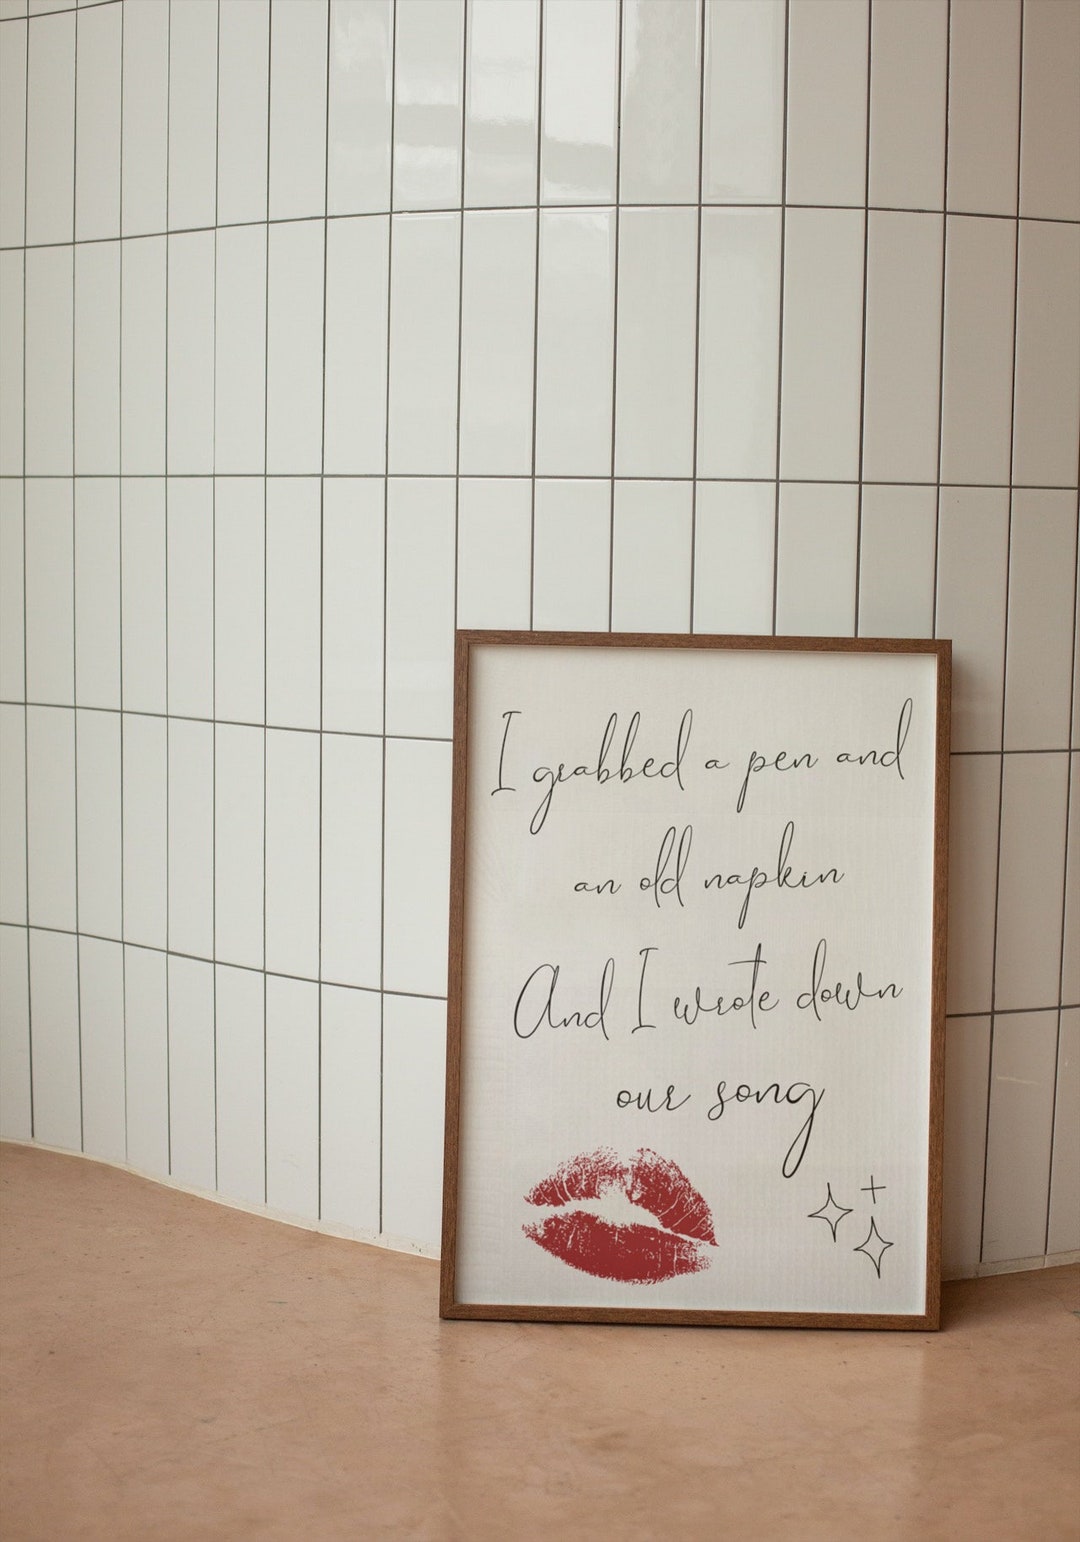 I grabbed a pen and
an old napkin
And I wrote down
our song